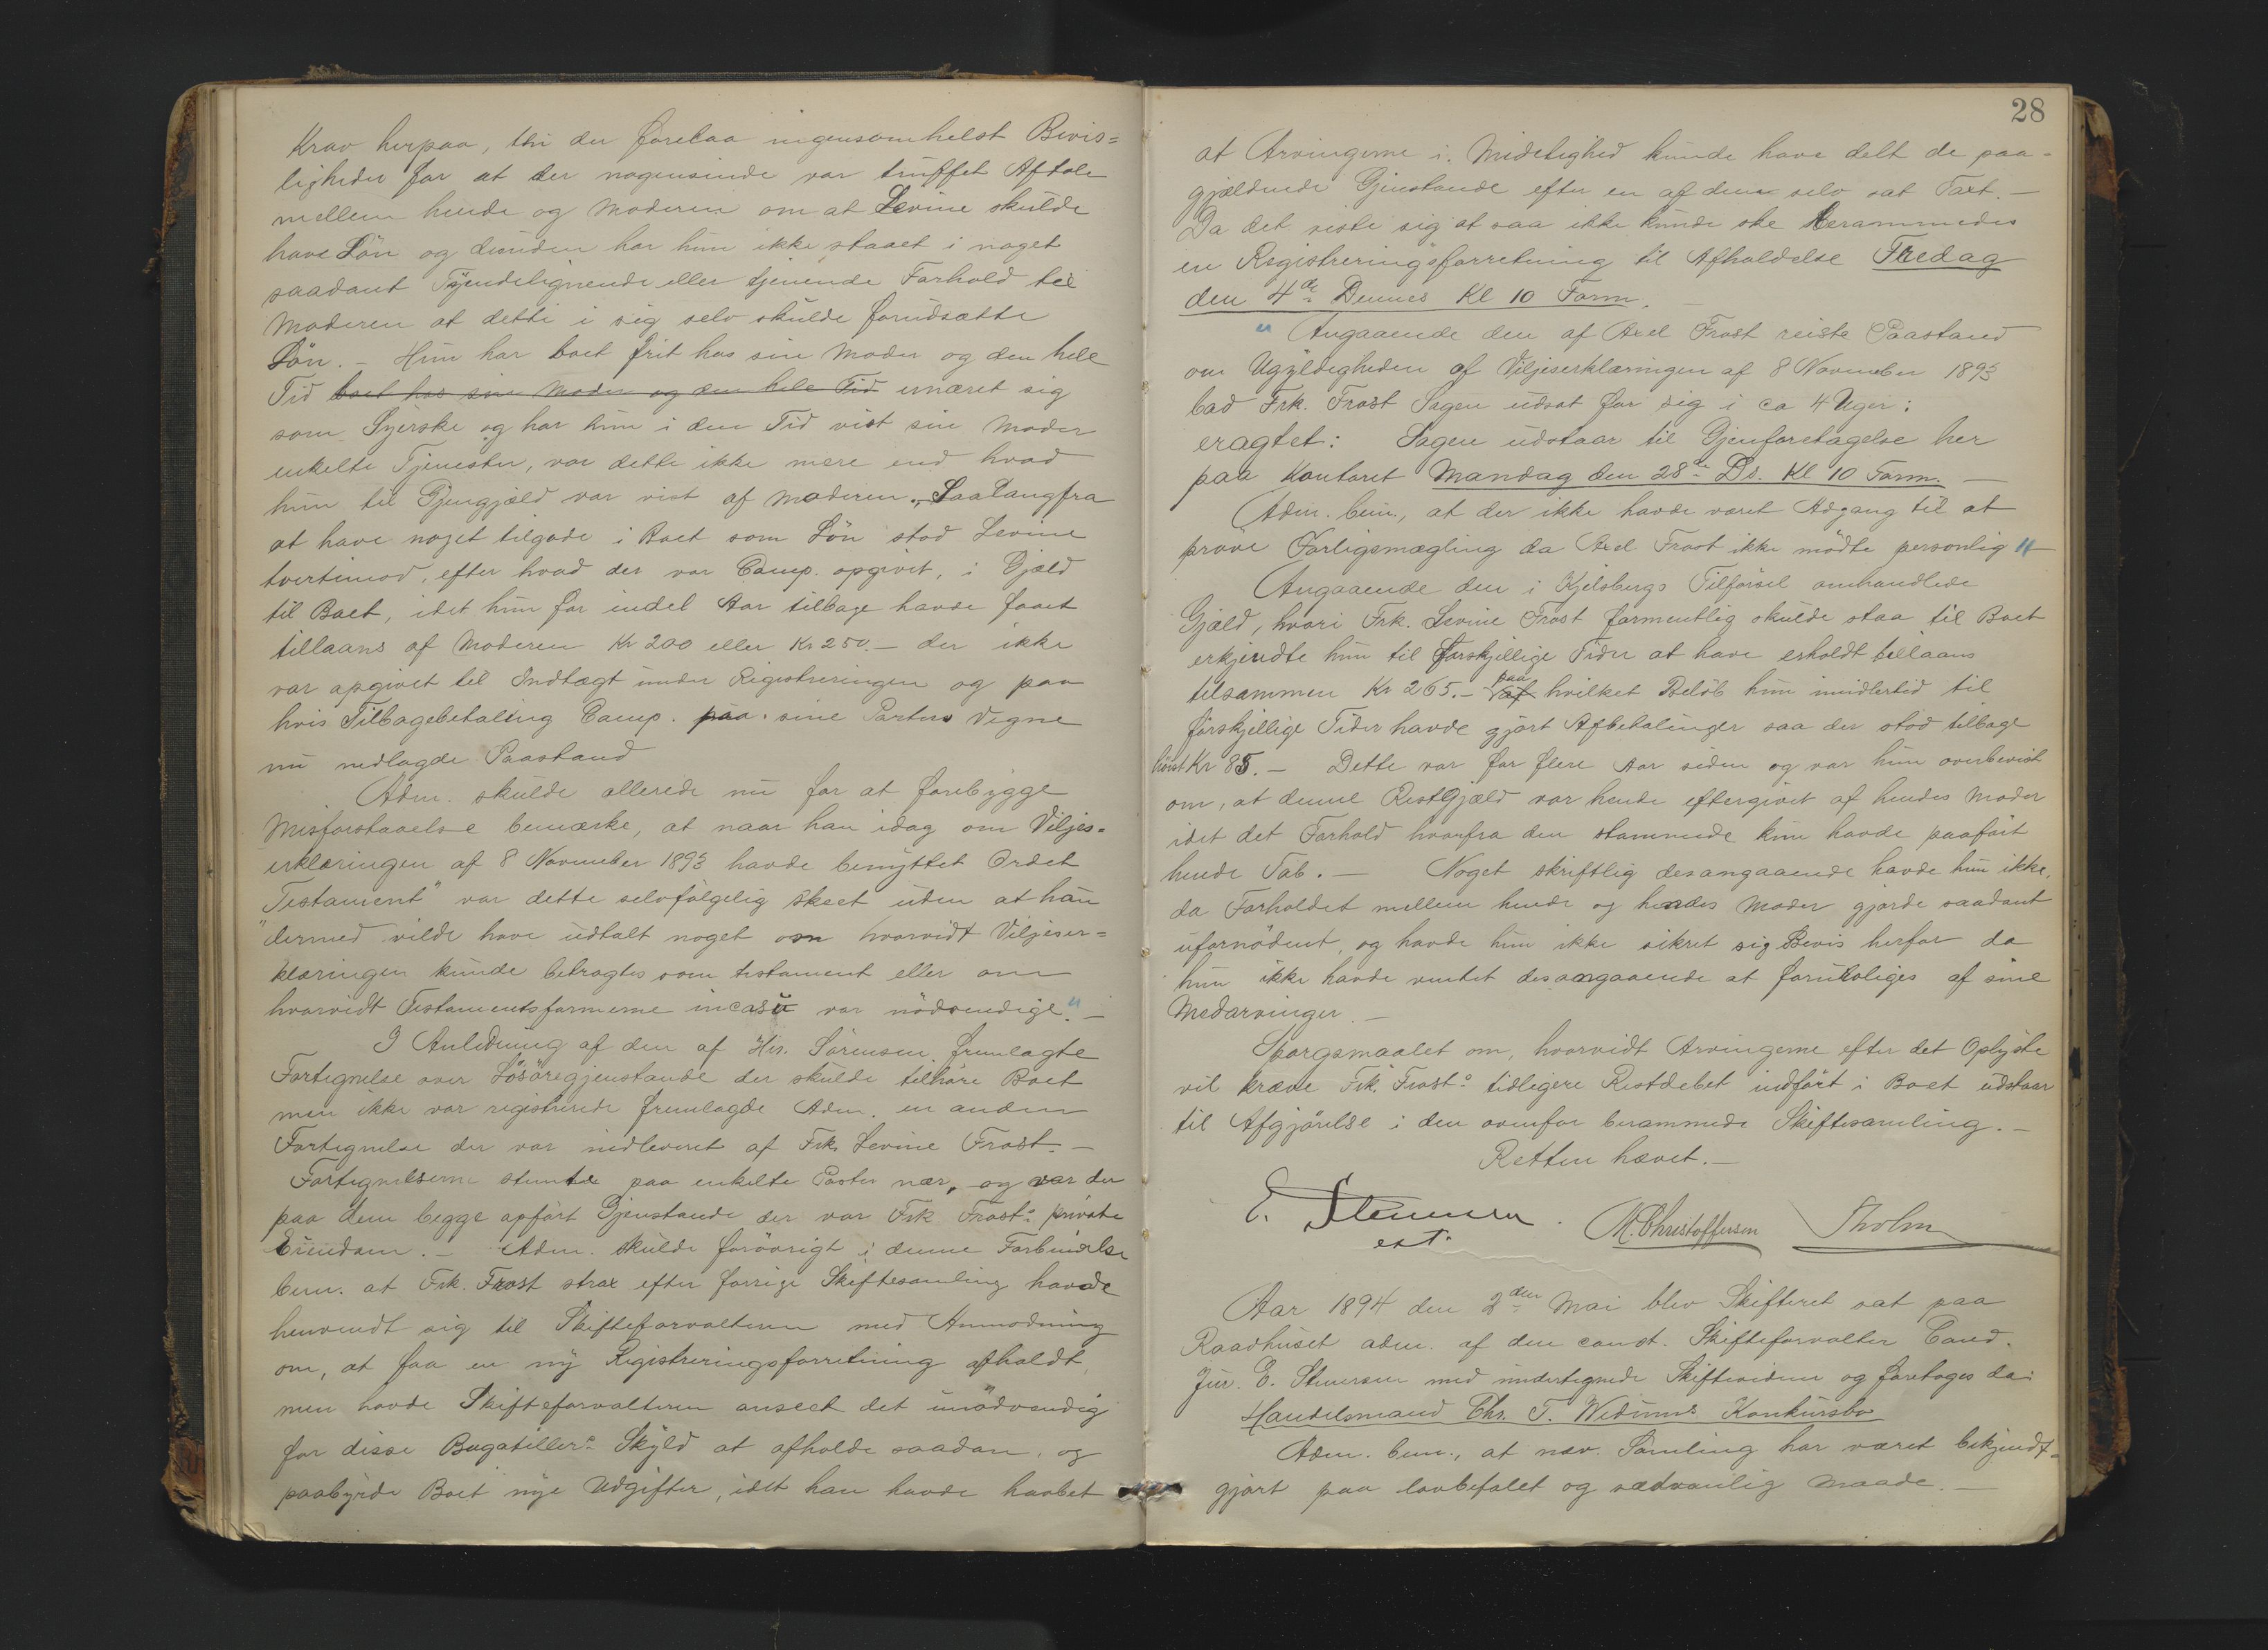 Krav herpaa, thi der forelaa ingensomhelst Bevis=
ligheder for at der nogensinde var truffet Aftale
mellem hende og Moderen om at Levine skulde
have Lön og desuden har hun ikke staaet i noget
saadant Tyendelignende eller tjenende Forhold til
Moderen at dette i sig selv skulde forudsætte
Lön. – Hun har boet frit hos sin Moder og den hele
Tid boet hos sin Moder og den hele Tid ernæret sig
som Syerske og har hun i den Tid vist sin Moder
enkelte Tjenester, var dette ikke mere end hvad
hun til Gjengjæld var vist af Moderen. Saalangfra
at have noget tilgode i Boet som Lön stod Levine
tvertimod, efter hvad der var Comp. opgivet, i Gjæld
til Boet, idet hun for endel Aar tilbage havde faaet
tillaans af Moderen Kr 200 eller Kr 250.– der ikke
var opgivet til Indtægt under Registreringen og paa
hvis Tilbagebetaling Comp. paa sine Parters Vegne
nu nedlagde Paastand
Adm. skulde allerede nu for at forebygge
Misforstaaelse bemærke, at naar han idag om Viljes=
erklæringen af 8 November 1893 havde benyttet Ordet
"Testament" var dette selvfölgelig skeet uden at han
dermed vilde have udtalt noget om hvorvidt Viljeser=
klæringen kunde betragtes som testament eller om
hvorvidt Testamentsformerne incasu var nödvendige". –
I Anledning af den af Hr. Sörensen fremlagte
Fortegnelse over Lösöregjenstande der skulde tilhöre Boet
men ikke var registrerede fremlagde Adm. en anden
Fortegnelse der var indleveret af Frk. Levine Frost. –
Fortegnelserne stemte paa enkelte Poster nær, og var der
paa dem begge opfört Gjenstande der var Frk Frosts private
Eiendom. – Adm. skulde forövrigt i denne Forbindelse
bem. at Frk. Frost strax efter forrige Skiftesamling havde
henvendt sig til Skifteforvalteren med Anmodning
om, at faa en ny Registreringsforretning afholdt
men havde Skifteforvalteren anseet det unödvendig
for disse Bagatellers Skyld at afholde saadan, og
paabyrde Boet nye Udgifter, idet han havde haabet
28
at Arvingerne i Mindelighed kunde have delt de paa-
gjældende Gjenstande efter en af dem selv sat Taxt. –
Da det viste sig at saa ikke kunde ske berammedes
en Registreringsforretning til Afholdelse Fredag
den 4de Dennes Kl 10 Form. –
" Angaaende den af Axel Frost reiste Paastand
om Ugyldigheden af Viljeserklæringen af 8 November 1893
bad Frk. Frost Sagen udsat for sig i ca 4 Uger:
eragtet: Sagen udstaar til Gjenforetagelse her
paa Kontoret Mandag den 28de Ds. Kl 10 Form. –
Adm. bem., at der ikke havde været Adgang til at
pröve Forligsmægling da Axel Frost ikke mödte personlig "–
Angaaende den i Kjelsbergs Tilförsel omhandlede
Gjæld, hvori Frk. Levine Frost formentlig skulde staa til Boet
erkjendte hun til forskjellige Tider at have erholdt tillaans
tilsammen Kr 265.– paa af hvilket Belöb hun imidlertid til
forskjellige Tider havde gjort Afbetalinger saa der stod tilbage
höist Kr 85. – Dette var for flere Aar siden og var hun overbevist
om, at denne Restgjæld var hende eftergivet af hendes Moder
idet det Forhold hvorfra den stammede kun havde paafört
hende Tab. – Noget skriftlig desangaaende havde hun ikke,
da Forholdet mellem hende og hendes Moder gjorde saadant
ufornödent, og havde hun ikke sikret sig Bevis herfor da
hun ikke havde ventet desangaaende at foruroliges af sine
Medarvinger. –
Spörgsmaalet om, hvorvidt Arvingerne efter det Oplyste
vil kræve Frk. Frosts tidligere Restdebet indfört i Boet udstaar
til Afgjörelse i den ovenfor berammede Skiftesamling. –
Retten hævet. –
E. Stenersen. M. Christoffersen Tholm
cst.
Aar 1894 den 2den Mai blev Skifteret sat paa
Raadhuset adm. af den const. Skifteforvalter Cand.
Jur. E. Stenersen med undertegnede Skiftevidner og foretoges da:
Handelsmand Chr. T. Widnms Konkursbo
Adm. bem., at næv. Samling har været bekjendt-
gjort paa lovbefalet og sædvanlig Maade. –